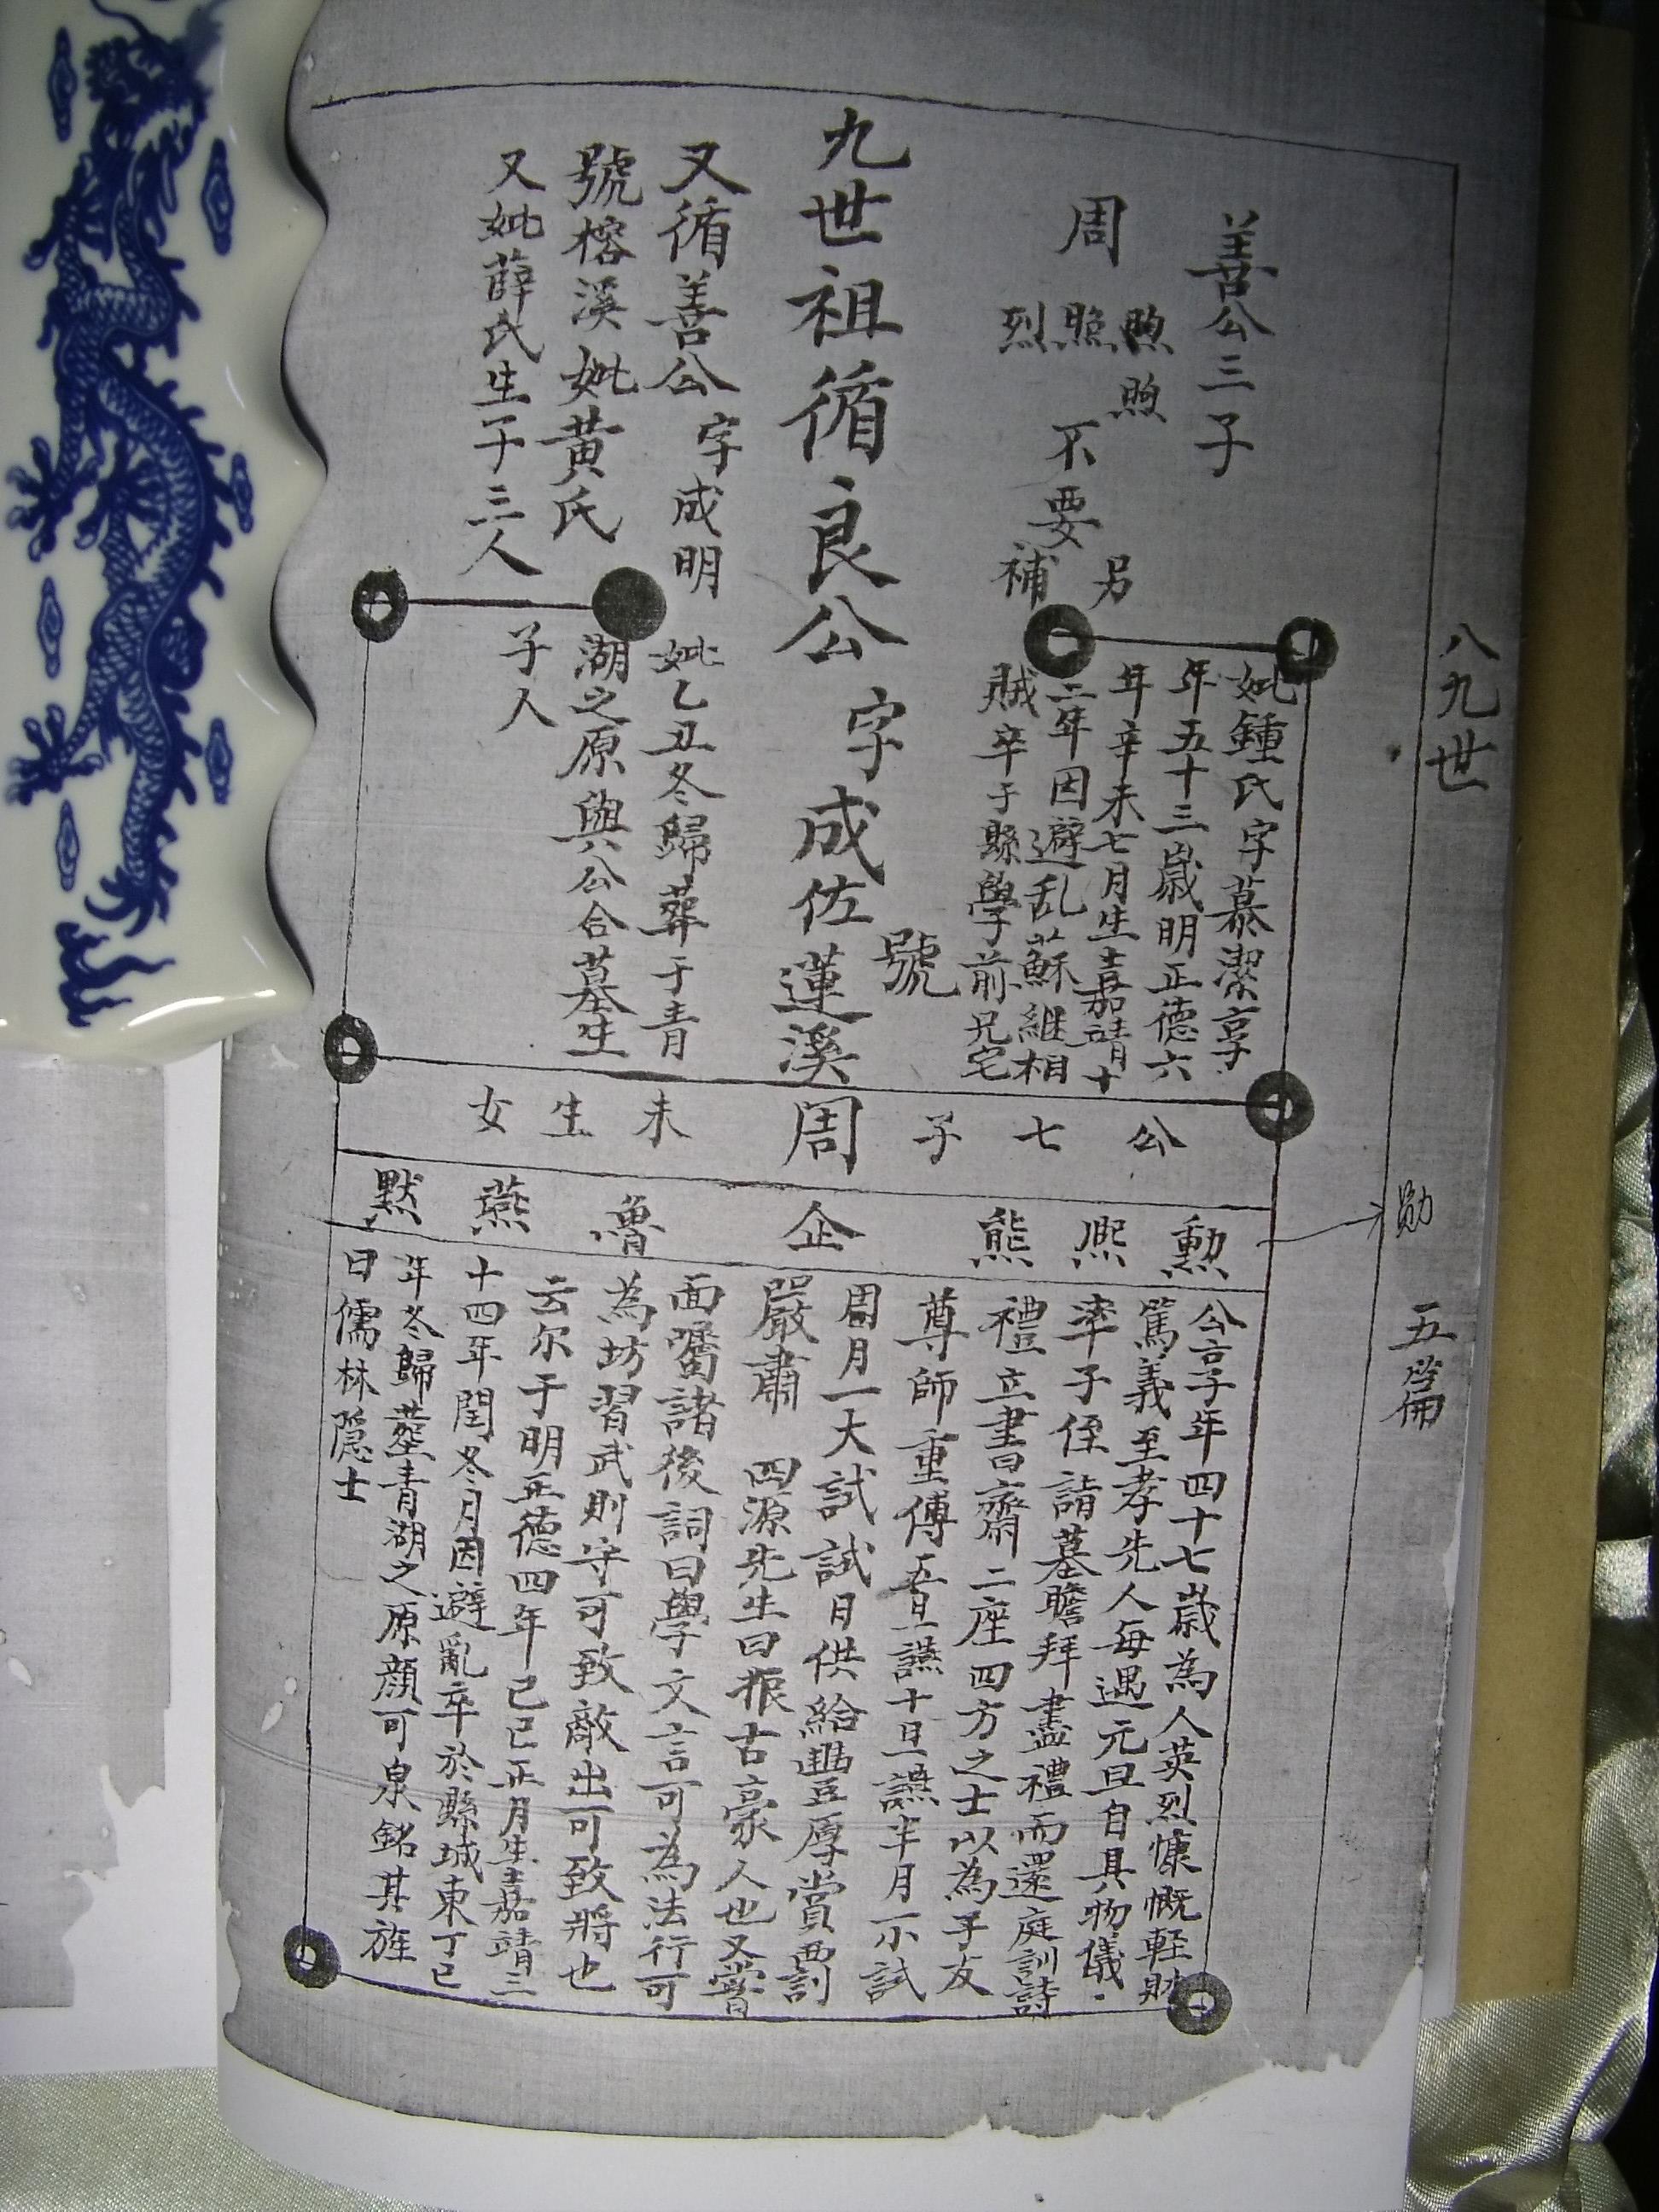 八九世
勛
五篇
善公三子
周
煦煦
照
烈
不要
另
補
妣鍾氏字慕潔享
年五十三歲明正德六
年辛未七月生嘉靖十
二年因避乱蘇繼相
賊卒于縣學前兄宅
九世祖循良公字成佐
號
蓮溪
又循善公字成明
號榕溪妣黃氏
又妣薛氏生子三人
妣乙丑冬歸葬于青
湖之原與公合墓生
子人
公七子周未生女
勳
熈
熊
企
魯
燕
默
公享年四十七歲為人英烈慷慨輕財
篤義至孝先人每遇元旦自具物儀
率子侄請墓瞻拜盡禮而還庭訓詩
禮立書齋二座四方之士以為子友
尊師重傅五旦讌十旦讌半月小試
周月一大試試日供給豐厚賞罰
嚴肅四源先生曰振古豪人也又嘗
面囑諸後詞曰學文言可為法行可
為坊習武則守可致敵出可致將也
云尔于明正德四年己巳正月生嘉靖三
十四年閏冬月因避亂卒於縣城東丁巳
年冬歸塟青湖之原顏可泉銘其旌
曰儒林隱士